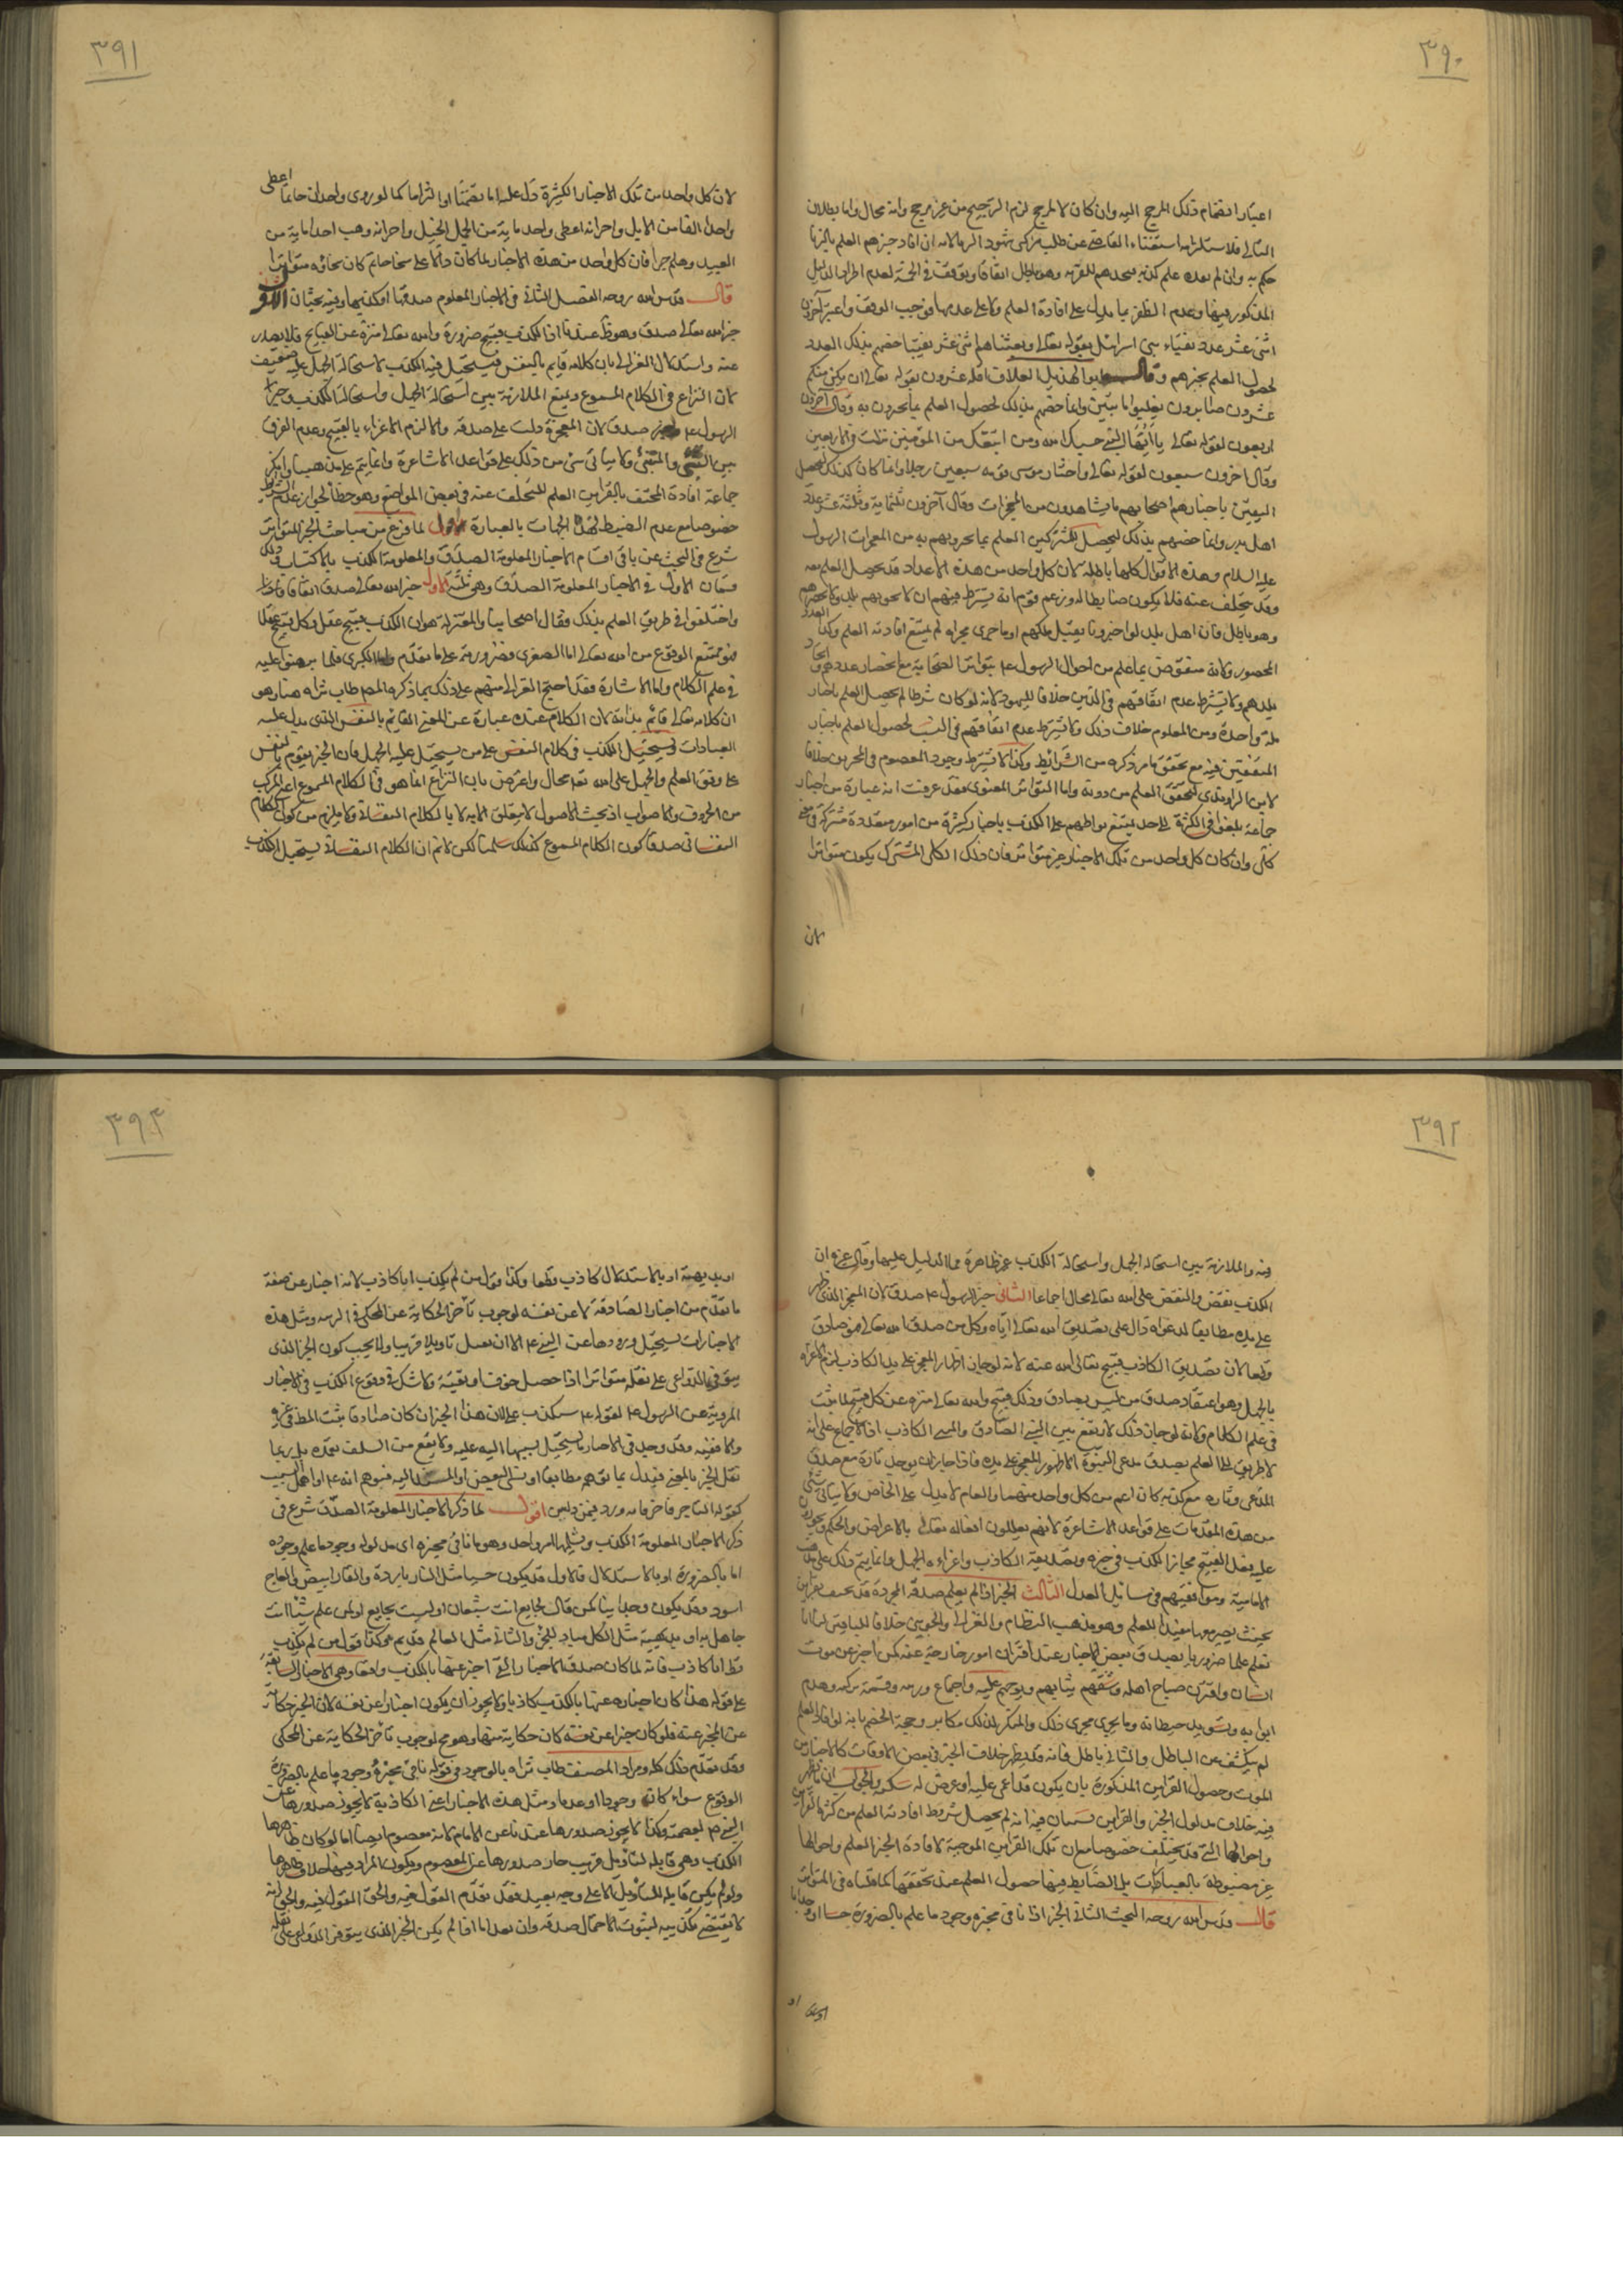 ٣٩٠
اعتبار انضمام ذلك المرجح اليه وان كان لا لمرجح لزم الترجيح من غير مرجح وانه محال واما بطلان
التالي فلاستلزامه استغناء القاضي عن طلب مزكى شهود الزنا لانه ان افاد خبرهم العلم بالزنا
حكم به وان لم يفده علم كذبهم وهو باطل اتفاقا وتوقف في الخمسة لعدم اطراد الدليل
المذكور فيها وعدم الظفر بما يدل على افادة العلم ولا على عدمها فوجب الوقف واعتبر آخرون
اثنى عشر عدد نقباء بني اسرائيل بقوله تعالى وبعثنا منهم اثنى عشر نقيبا خصهم بذلك العدد
لحصول العلم بخبرهم وقال ابو الهذيل العلاف اقله عشرون بقوله تعالى ان يكن منكم
عشرون صابرون يغلبوا مائتين وانما خصهم بذلك لحصول العلم بما يخبرون به وقال آخرون
اربعون لقوله تعالى يا ايها النبي حسبك الله ومن اتبعك من المؤمنين نزلت في الاربعين
وقال آخرون سبعون لقوله تعالى واختار موسى قومه سبعين رجلا وانما كان كذلك ليحصل
اليقين باخبارهم اصحابهم ما يشاهدون من المعجزات وقال آخرون ثلثمائة وثلثة عشر عدد
اهل بدر وانما خصهم بذلك ليحصل للمشركين العلم بما يخبرونهم به من معجزات الرسول
عليه السلام وهذه الاقوال كلها باطلة لان كل واحد من هذه الاعداد قد يحصل العلم معه
وقد يتخلف عنه فلا يكون ضابطا له وزعم قوم انه يشترط فيهم ان لا يحويهم بلد ولا يحصرهم عدد
وهو باطل فان اهل بلد لو اخبرونا بقتل ملكهم او ما جرى مجراه لم يمتنع افادته العلم وكذا
المحصور ولانه منقوض بما علم من احوال الرسول ع بتواتر الصحابة مع انحصار عددهم واتحاد
بلدهم ولا يشترط عدم اتفاقهم في الدين خلافا لليهود لانه لو كان شرطا لم يحصل العلم باخبار
ملة واحدة ومن المعلوم خلاف ذلك ولا يشترط عدم اتفاقهم في النسب لحصول العلم باخبار
المتفقين فيه مع تحقق ما مر ذكره من الشرائط وكذا لا يشترط وجود المعصوم في المخبرين خلافا
لابن الراوندي لتحقق العلم من دونه واما التواتر المعنوي فقد عرفت انه عبارة عن اخبار
جماعة بلغوا في الكثرة الى حد يمتنع تواطيهم على الكذب باخبار كثيرة من امور متعددة مشتركة في معنى
كلي وان كان كل واحد من تلك الاخبار غير متواتر فان ذلك الكلي المشترك يكون متواترا
لان
٣٩١
لان كل واحد من تلك الاخبار الكثيرة دل عليه اما تضمنا او التزاما كما لو روى واحد ان حاتما اعطى
واحدا الفا من الابل واخر انه اعطى واحدا مائة من الخيل واخر انه وهب احدا مائة من
العبيد وهلم جرا فان كل واحد من هذه الاخبار لما كان دالا على سخا حاتم كان سخاؤه متواترا
قال قدس الله روحه الفصل الثاني في الاخبار المعلوم صدقها او كذبها وفيه بحثان الاول
خبر الله تعالى صدق وهو ظ عندنا اذ الكذب قبيح ضرورة والله تعالى منزه عن القبايح فلا يصدر
عنه واستدلال الغزالي بان كلامه قايم بالنفس فيستحيل فيه الكذب لاستحالة الجهل عليه ضعيف
لان النزاع في الكلام المسموع ويمنع الملازمة بين استحالة الجهل واستحالة الكذب وخبر
الرسول ع صدق لان المعجزة دلت على صدقه والا لزم الاغراء بالقبيح وعدم الفرق
بين النبي والمتنبي ولا يتاتى شئ من ذلك على قواعد الاشاعرة وانما يتم على مذهبنا وانكر
جماعة افادة المحتف بالقراين العلم للتخلف عنه في بعض المواضع وهو خطأ لجواز عدم الشرط
خصوصا مع عدم الضبط لهذه الجهات بالعبارة اقول لما فرغ من مباحث الخبر المتواتر
شرع في البحث عن باقي اقسام الاخبار المعلومة الصدق والمعلومة الكذب بالاكتساب وذلك
قسمان الاول في الاخبار المعلومة الصدق وهي ثلثة الاول خبر الله تعالى صدق اتفاقا
واختلفوا في طريق العلم بذلك فقال اصحابنا والمعتزلة هو ان الكذب قبيح عقلا وكل قبيح عقلا
فهو ممتنع الوقوع من الله تعالى اما الصغرى فضرورية على ما تقدم واما الكبرى فلما برهنوا عليه
في علم الكلام واما الاشاعرة فقد احتج الغزالي منهم على ذلك بما ذكره المص طاب ثراه هنا وهو
ان كلامه تعالى قائم بذاته لان الكلام عنده عبارة عن المعنى القائم بالنفس الذي يدل عليه
العبادات ويستحيل الكذب في كلام النفس على من يستحيل عليه الجهل فان الخبر يقوم بالنفس
على وفق العلم والجهل على الله تعالى محال واعترض بان النزاع انما هو في الكلام المسموع اعنى المركب
من الحروف والاصوات اذ بحث الاصول لا يتعلق الا به لا بالكلام النفساني ولا يلزم من كون الكلام
النفساني صدقا كون الكلام المسموع كذلك سلمنا لكن لا نم ان الكلام النفساني يستحيل الكذب
٣٩٢
فيه والملازمة بين استحالة الجهل واستحالة الكذب غير ظاهرة فما الدليل عليها وقال غيره ان
الكذب نقص والنقص على الله تعالى محال اجماعا الثاني خبر الرسول ع صدق لان المعجز الذي ظهر
على يده مطابقا لدعواه دال على تصديق الله تعالى اياه وكل من صدقه الله تعالى فهو صادق
قطعا لان تصديق الكاذب قبيح تعالى الله عنه لانه لو جاز اظهار المعجز على يد الكاذب لزم الاغراء
بالجهل وهو اعتقاد صدق من ليس بصادق وذلك قبيح والله تعالى منزه عن كل قبيح لما يثبت
في علم الكلام ولانه لو جاز ذلك لارتفع بين النبي الصادق والمتنبي الكاذب اذ الاجماع على انه
لا طريق الى العلم بصدق مدعى النبوة الا ظهور المعجز على يده فاذا جاز ان يوجد تارة مع صدق
المدعى وتارة مع كذبه كان اعم من كل واحد منهما والعام لا يدل على الخاص ولا يتاتى شئ
من هذه المقدمات على قواعد الاشاعرة لانهم يعللون افعاله تعالى بالاغراض والحكم ويجوزون
عليه فعل القبيح فجاز الكذب في خبره وتصديقه الكاذب واغراءه الجهل وانما يتم ذلك على مذهب
الامامية وموافقيهم في مسائل العدل الثالث الخبر اذا لم يعلم صدقه المجردة قد يحتف بقراين
بحيث يصير معها مفيدا للعلم وهو مذهب النظام والغزالي والجويني خلافا للباقين لنا انا
نعلم علما ضروريا بصدق بعض الاخبار عند اقتران امور خارجية عنه كمن اخبر عن موت
انسان واقترن صياح اهله وشقهم ثيابهم ونوحهم عليه واجتماع ورثته وقسمة تركته وهدم
ابوابه وتسويد حيطانه وما يجري مجرى ذلك والمنكر لذلك مكابر وحجة الخصم بانه لو افاد العلم
لم ينكشف عن الباطل والتالي باطل فانه قد يظهر خلاف الخبر في بعض الاوقات كالاخبار عن
الموت وحصول القراين المذكورة بان يكون قد اغمى عليه او عرض له سكتة والجواب ان ما ظهر
فيه خلاف مدلول الخبر والقراين نسلم ان فيه انه لم يحصل شروط افادته العلم من كثرة القراين
واحوالها التي قد يختلف خصوصا مع ان تلك القراين الموجبة لافادة الخبر العلم واحوالها
غير مضبوطة بالعبارات بل الضابط فيها حصول العلم عند تحققها كما قلناه في المتواتر
قال قدس الله روحه البحث الثاني الخبر اذا نافى مخبره وجود ما علم بالضرورة حسا او وجدانا
او بديهة
٣٩٣
او بديهة او بالاستدلال كاذب قطعا وكذا قول من لم يكذب انا كاذب لانه اخبار عن صفة
ما تقدم من اخبار الصادقة لا عن نفسه لوجوب تأخر الحكاية عن المحكي في الرتبة ومثل هذه
الاخبار يستحيل ورودها عن النبي ع الا ان نقبل تاويلا قريبا ولا يجب كون الخبر الذي
يتوفر الدواعي على نقله متواترا اذا حصل خوف او تقية ولا شك في وقوع الكذب في الاخبار
المروية عن الرسول ع لقوله ع سيكذب على لان هذا الخبر ان كان صادقا ثبت المط في غيره
والا ففيه وقد وجد في الاخبار ما يستحيل نسبتها اليه عليه ولا يقع من السلف تعمده بل ربما
نقل الخبر بالمعنى فبدل بما توهم مطابقا او نسى البعض او المسند اليه فتوهم انه ع او اهمل السبب
كقوله التاجر فاجر فانه ورد فيمن دلس اقول لما ذكر الاخبار المعلومة الصدق شرع في
ذكر الاخبار المعلومة الكذب ويشملها امر واحد وهو ما نافى مخبره اي مدلوله وجود ما علم وجوده
اما بالضرورة او بالاستدلال فالاول قد يكون حسيا مثل النار باردة والقار ابيض والعاج
اسود وقد يكون وجدانيا كمن قال لجايع انت شبعان او لست بجايع او لمن علم شيئا انت
جاهل به او بديهية مثل الكل مساو للجزء والثاني مثل العالم قديم وكذا قول من لم يكذب
قط انا كاذب فانه لما كان صدقه الاخبار التي اخبر عنها بالكذب وهي الاخبار السابقة
على قوله هذا كان اخباره عنها بالكذب كاذبا ولا يجوز ان يكون اخبارا عن نفسه لان الخبر حكاية
عن المخبر عنه فلو كان خبرا عن نفسه كان حكاية عنها وهو مح لوجوب تاخر الحكاية عن المحكي
وقد تقدم ذلك كله ومراد المصنف طاب ثراه بالوجود في قوله نافى مخبره وجود ما علم بالضرورة
الوقوع سواء كان وجودا او عدما ومثل هذه الاخبار اعنى الكاذبة لا يجوز صدورها عن
النبي ص لعصمته وكذا لا يجوز صدورها عندنا عن الامام لانه معصوم ايضا اما لو كان ظاهرها
الكذب وهي قابلة لتاويل قريب جاز صدورها عن المعصوم ويكون المراد فيها خلاف ظاهرها
ولو لم يكن قابلة للتأويل الا على وجه بعيد فقد تقدم القول فيه والحق القول فيه والجواب انه
لا يقتضي تكذيبه لثبوت الاحتمال صدقه وان بعد اما اذا لم يكن الخبر الذي يتوفر الدواعي على نقله